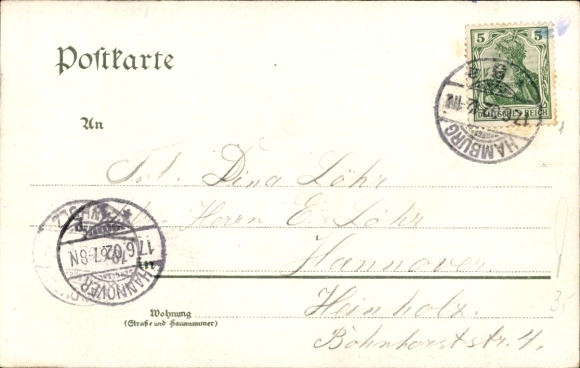 Postkarte
5 5
DEUTSCHES REICH
HAMBURG
17.6.02
An
Frl. Dina Löhr
Herrn E. Löhr
HANNOVER
17.6.02.
7-8N
in Hannover.
Hainholz.
Wohnung
(Straße und Hausnummer)
Bohnhorststr. 4.